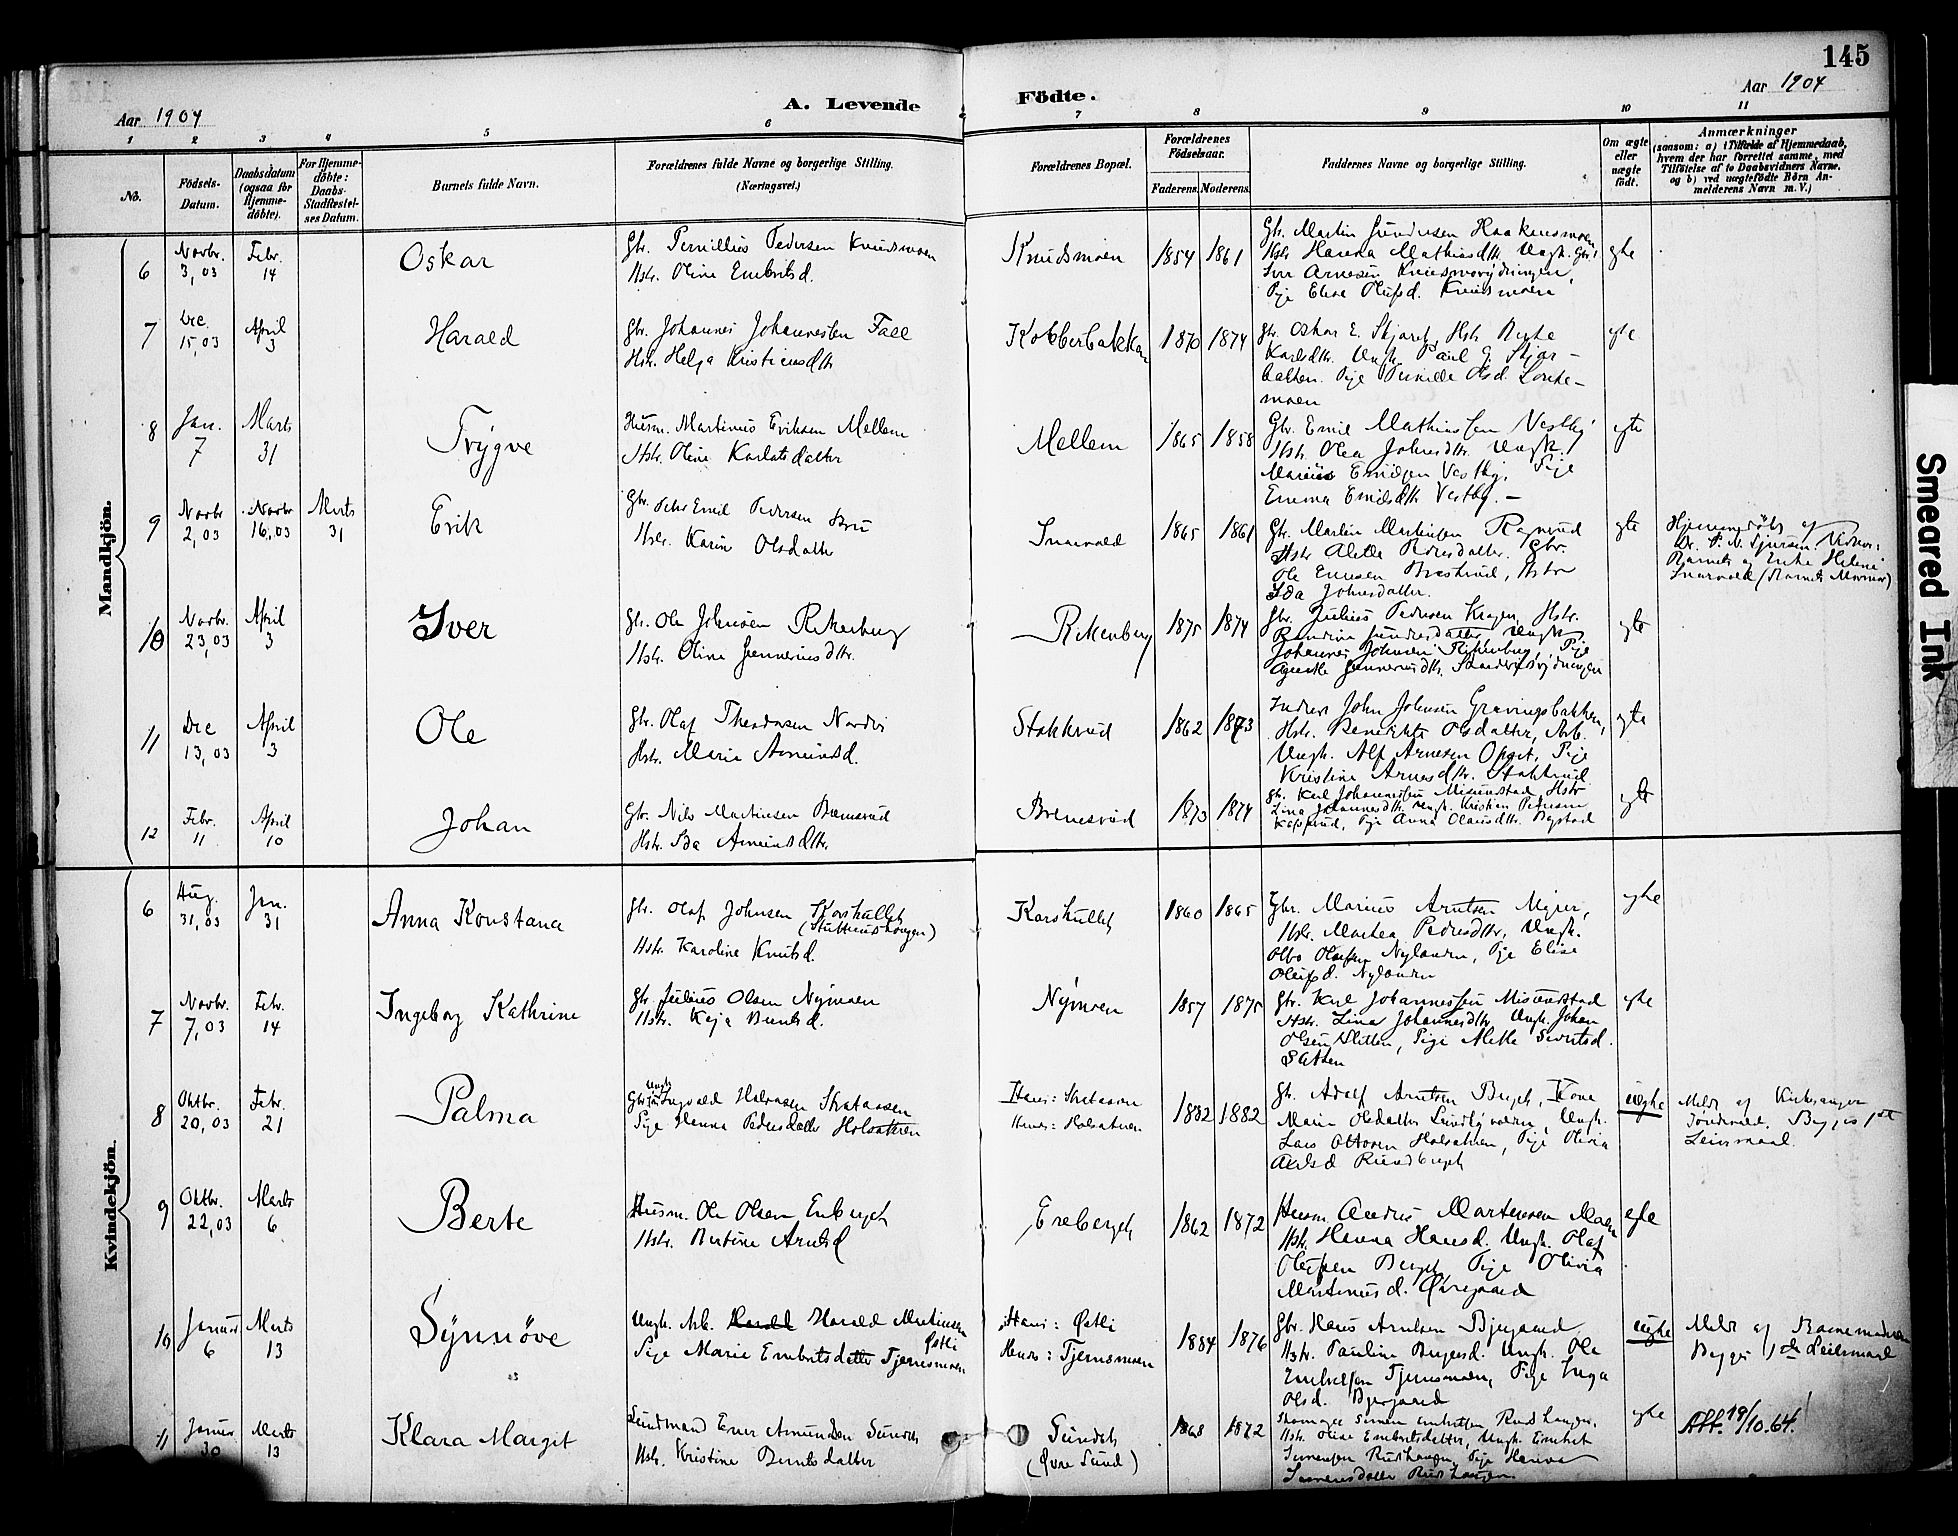 145
Aar 1904
A. Levende Födte.
Aar 1904
1 2 3 4 5 6 7 8 9 10 11
No.
Födsels-Datum.
Daabsdatum (ogsaa for Hjemme-döbte).
For Hjemme-döbte: Daabs-Stadfæstel-ses Datum.
Barnets fulde Navn.
Forældrenes fulde Navne og borgerlige Stilling. (Næringsvei.)
Forældrenes Bopæl.
Forældrenes Födselsaar.
Faderens. Moderens.
Faddernes Navne og borgerlige Stilling.
Om ægte eller uægte födt.
Anmærkninger
(saasom: a) i Tilfælde af Hjemmedaab, hvem der har forrettet samme, med Tilföielse af to Daabsvidners Navne, og b) ved uægtefödte Börn An-melderens Navn m. V.)
Mandkjön.
6 Novbr. 3,03 Febr. 14 Oskar
Gbr. Pernillius Pedersen Knudsmoen
Hstr. Oline Embretsd.
Knudsmoen 1854 1861
Gbr. Martin Gundersen Haakensmoen
Hstr. Hanna Mathiasdtr. Ungk. Gbr.
Iver Arnesen
Pige Elise Olufsd. Knudsmoen
ægte
7 Dec. 15,03 April 3 Harald
Gbr. Johannes Johannessen Fall
Hstr. Helga Kristiansdtr
Kobberbakken 1870 1874
Gbr. Oskar E. Skjaret, Hstr. Berthe
Karlsdtr. Ungk. Paul G. Skjær-
bakken. Pige Pernille Olsd.
moen
ægte
8 Jan. 7 Marts 31 Trÿgve
Husm. Martinus Eriksen Mellem
Hstr. Oline Karlatsdatter
Mellem 1865 1858
Gbr. Emil Mathiassen Vestby
Hstr. Olea Johnsdtr. Ungk.
Marius Emilsen Vestby. Pige
Emma Emilsdtr Vestby. —
ægte
9 Novbr 2,03 Novbr 16,03 Marts 31 Erik
Gbr. Peter Emil Pedersen
Hstr. Karin Olsdatter
Snarvold 1865 1861
Gbr. Martin Martinsen Rognerud
Hstr Alette Pedersdatter. Gbr.
Ole Evensen Brastrud, Hstr
Ida Johnsdatter.
ægte
Hjemmedöbt af
Dr. P. N. Tjersen. Vidner:
Barnets og Enke Helene
Snarvold (Barnets Mormor)
10 Novbr. 23,03 April 3 Iver
Gbr. Ole Johnsen Rekenberg
Hstr. Oline Gunneriusdtr.
Rekenberg 1875 1874
Gbr. Julius Pedersen Kragen, Hstr.
Randine Gundersdatter, Ungk
Johannes Johnsen Rekenberg, Pige
Agnethe Gunneriusdtr.
ægte
11 Dec 13,03 April 3 Ole
Gbr. Olaf Theodorsen Nordli
Hstr. Marie Arneiusd.
Stakkrud 1862 1873
Inders John Johnsen Gravingsbakken,
Hstr. Benedikte Olsdatter, Arb.
Ungk. Alf Arnesen Opset, Pige
Kristine Arnesdtr. Stakkrud
ægte
12 Febr. 11 April 10 Johan
Gbr. Nils Martinsen Brenesrud
Hstr. Ida Arneiusdtr.
Brenesrud 1873 1874
Gbr. Karl Johannessen Misundstad Hstr
Lina Johannesdtr Ungk. Kristian Pedersen
Kopperud, Pige Anna Olausdtr. Bagstad
ægte
Kvindekjön.
6 Aug. 31,03 Jan. 31 Anna Konstance
Gbr. Olaf Johnsen Korshullet
Hstr. Karoline Knutsd.
Korshullet 1860 1865
Gbr. Marius Arntsen Mejer,
Hstr. Marthea Pedersdtr, Ungk.
Otto Olufsen Nylænden, Pige Elise
Olufsd. Nylænden
ægte
7 Novbr. 7,03 Febr. 14 Ingeborg Kathrine
Gbr. Julius Olsen Nÿmoen
Hstr. Kaja Berntsd.
Nÿmoen 1857 1875
Gbr. Karl Johannessen Misundstad
Hstr. Lina Johannesdtr Ungk. Johan
Olsen Sletten, Pige Mette Sivertsd.
Sletten
ægte
8 Oktbr. 20,03 Febr. 21 Palma
Ungk. Ingvald Halvorsen Stataasen
Pige Hanna Pedersdatter Holsætren
Hans: Stataasen
Hendes: Holsætren 1882 1882
Gbr. Adolf Arntsen Berget, Kone
Marie Olsdatter Lundbyvolden, Ungk.
Lars Ottosen Holsætren, Pige Olivia
Axelsd Rundberget
uægte
Meldt af Kirkesanger
Begges 1ste
Leiermaal.
9 Oktbr. 22,03 Marts 6 Berte
Husm. Ole Olsen Enberget
Hstr. Bertine Arntsd
Eneberget 1862 1872
Husm Andrus Martinsen Moen
Hstr. Hanna Hansd. Ungk. Olaf
Olufsen Berget, Pige Olivia
Martinusd. Øvregaard
ægte
10 Januar 6 Marts 13 Sÿnnöve
Ungk. Arb. Harald Martinsen Østli
Pige Marie Embretsdatter Tjernsmoen
Hans: Østli
Hendes: Tjernsmoen 1884 1876
Gbr. Hans Arntsen Bjergaard
Hstr. Pauline Birgersd. Ungk. Ole
Embretsen Tjernsmoen, Pige Inga
Olsd. Bjergaard
uægte
Meldt af Barnemoderen
Begges 1ste Leiermaal
11 Januar 30 Marts 13 Klara Margit
Hstr. Kristine Berntsdatter
Sundet
(Øvre Sund) 1868 1872
Simen Embretsen Rudshaugen,
Hstr. Olise Embretsdatter, Ungk. Embret
Simensen Rudshaugen, Pige Hanna
Simensdatter Rudshaugen
ægte
Att. 19/10.64!
Smeared Ink